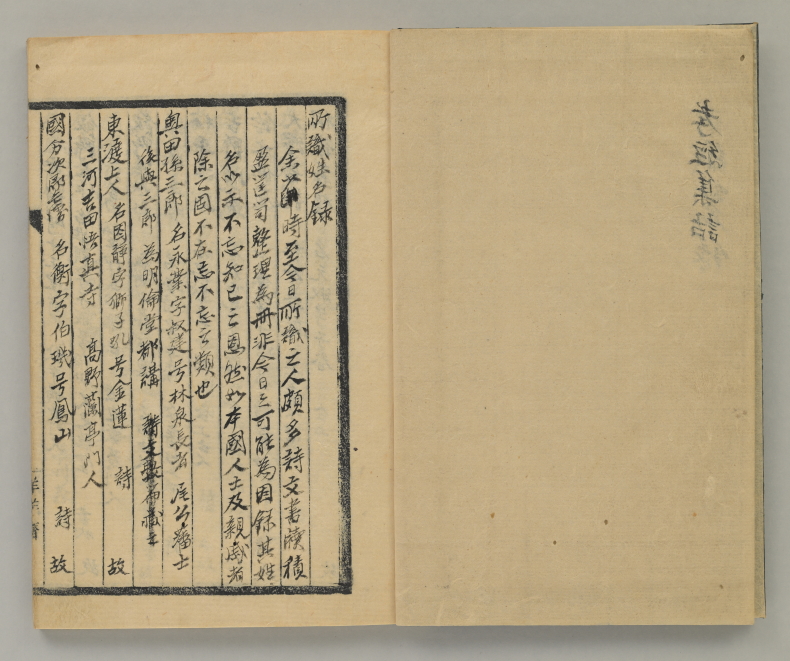 孝經集話
所識姓名錄
余少時至今日所識之人頗多詩文書牘積
盈筐笥整理為冊非今日之可能為因錄其姓
名以示不忘知己之恩然如本國人士及親戚者
除之固不在忘不忘之類也
奧田孫三郎 名永業字叔建号林泉長者 尾公藩士
後與三郎 為明倫堂都講
東渡上人 名因靜字獅子吼号金蓮 詩 故
三河吉田悟真寺 高野蘭亭門人
國分次郎 名衡字伯璣号鳳山 詩 故